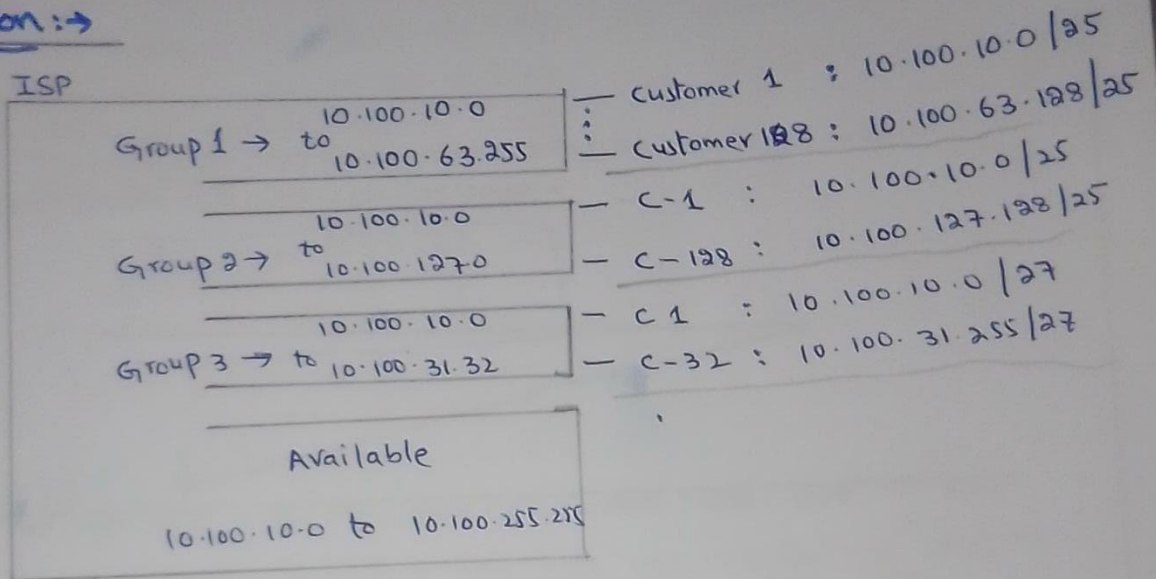 on :→
ISP
Group 1 → 10.100.10.0
to
10.100.63.255
Customer 1 : 10.100.10.0/25
Customer 128 : 10.100.63.128/25
Group 2 → 10.100.10.0
to
10.100.127.0
C-1 : 10.100.10.0/25
C-128 : 10.100.127.128/25
Group 3 → 10.100.10.0
to 10.100.31.32
C1 : 10.100.10.0/27
C-32 : 10.100.31.255/27
Available
10.100.10.0 to 10.100.255.255